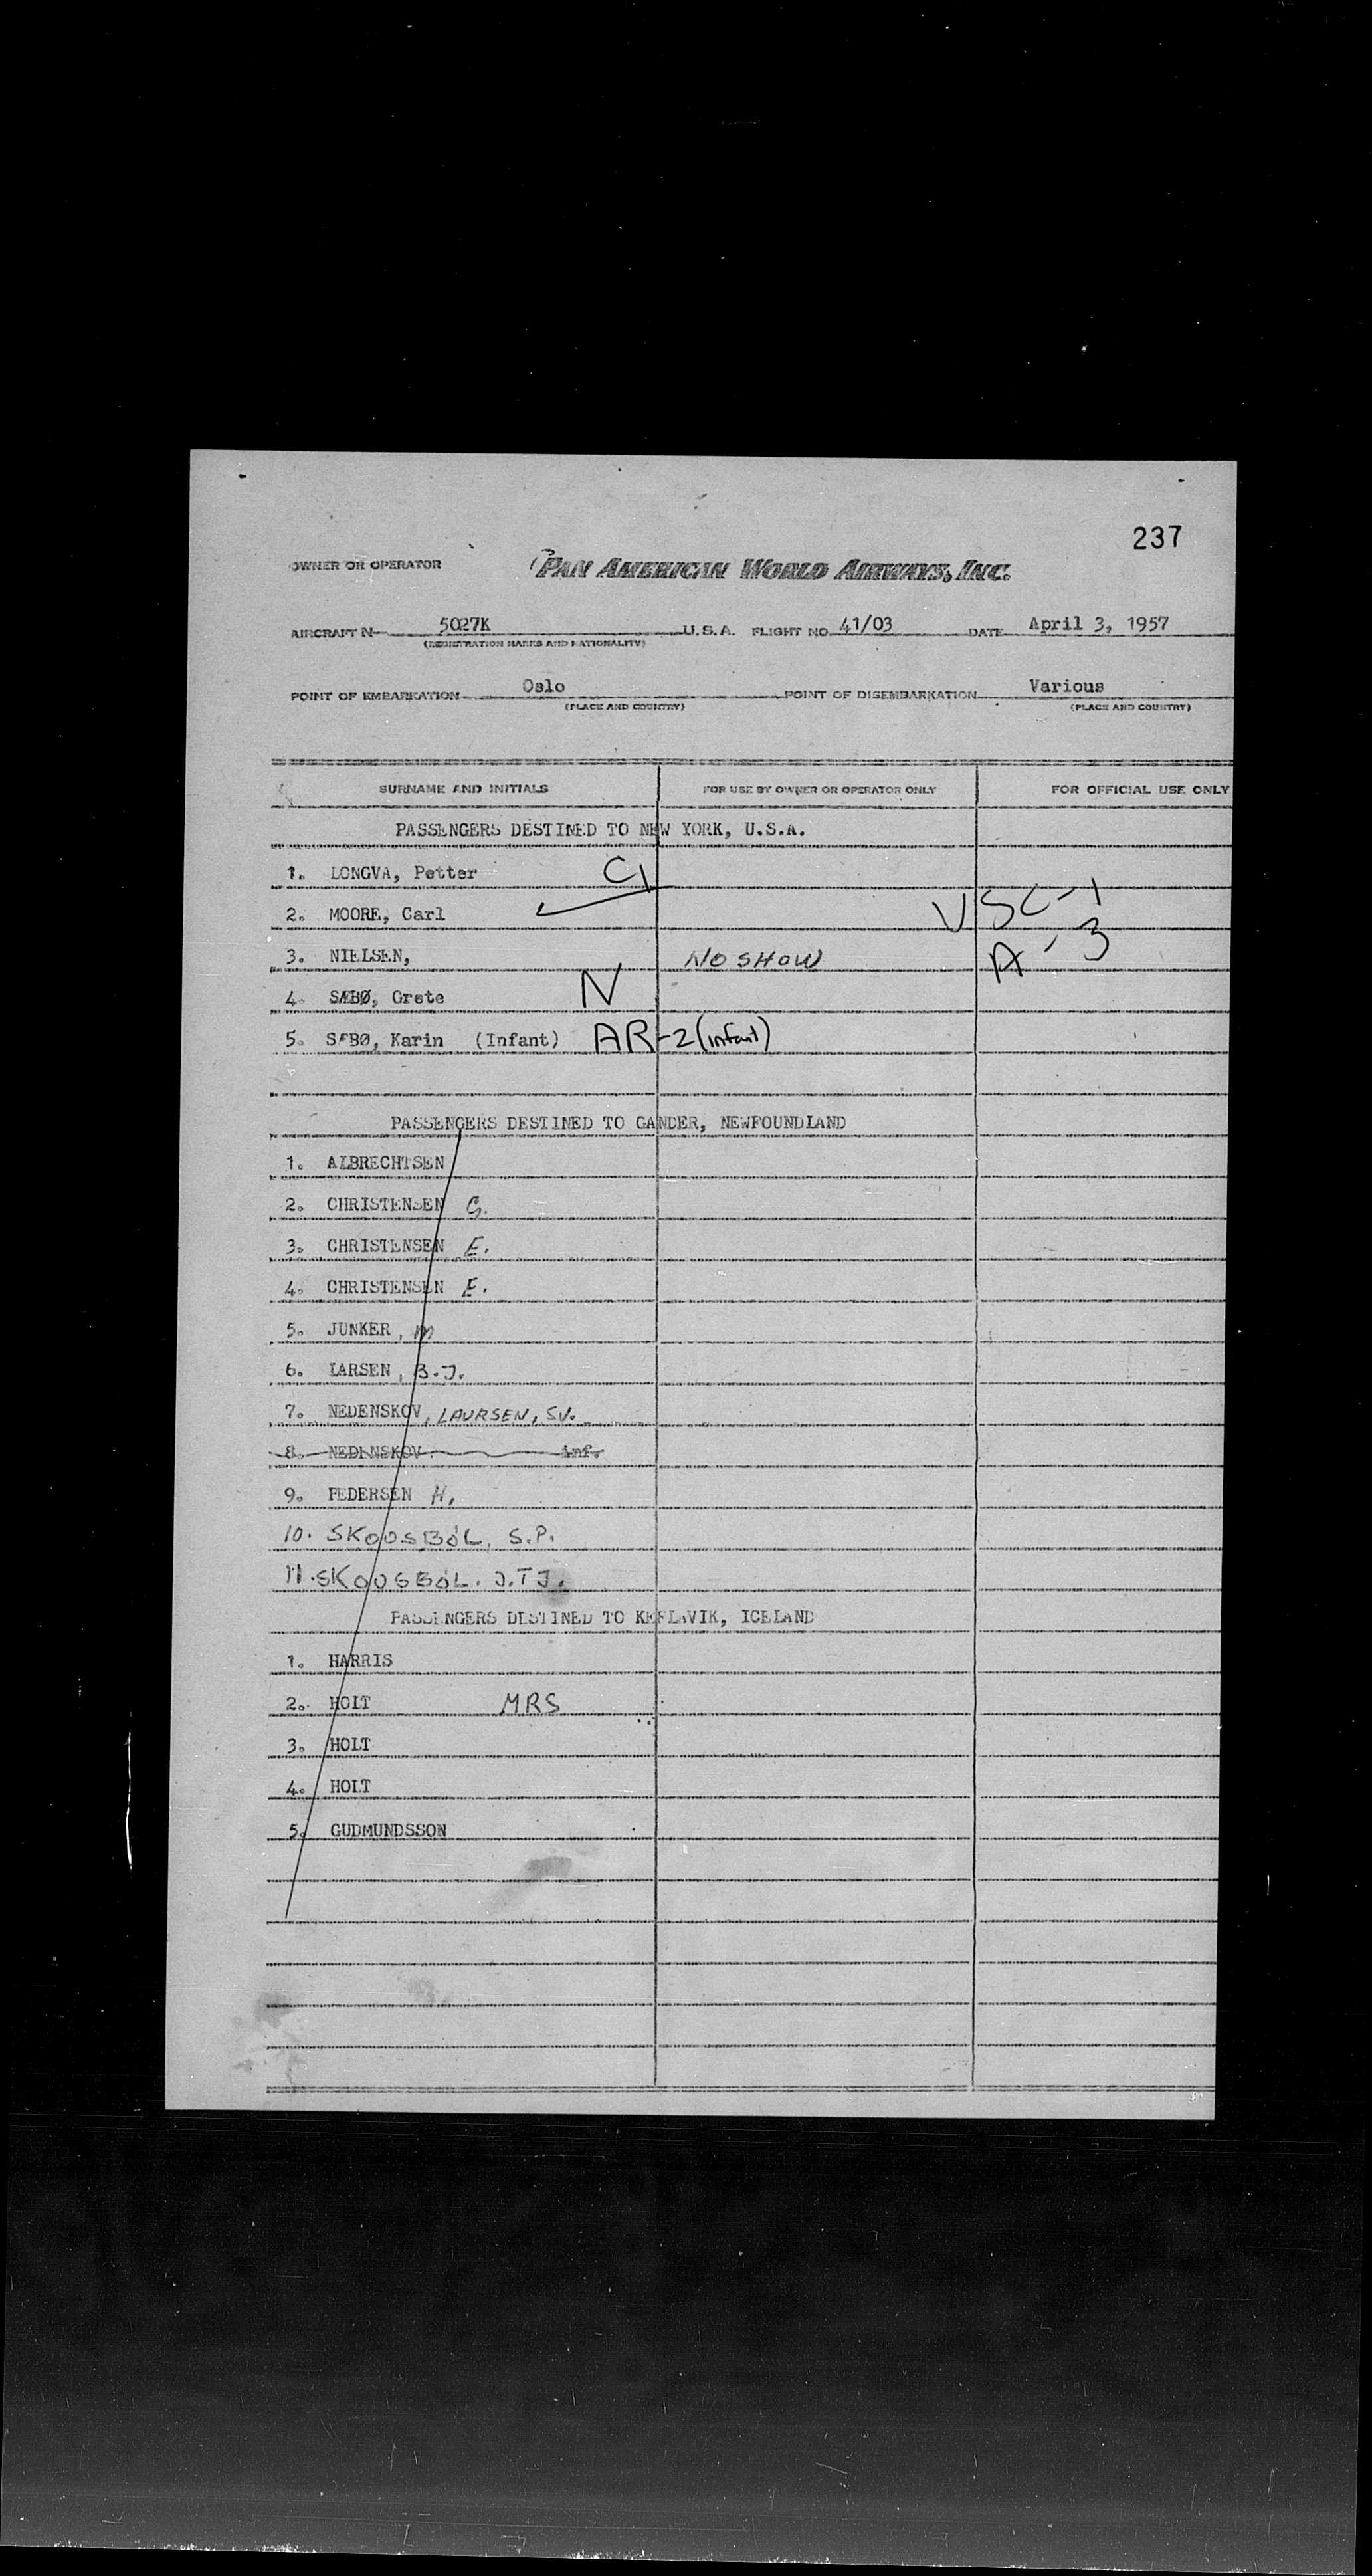 237
OWNER OR OPERATOR PAN AMERICAN WORLD AIRWAYS, INC.
AIRCRAFT N- 5027K U.S.A. FLIGHT NO. 41/03 DATE April 3, 1957
(REGISTRATION MARKS AND NATIONALITY)
POINT OF EMBARKATION Oslo POINT OF DISEMBARKATION Various
(PLACE AND COUNTRY) (PLACE AND COUNTRY)
SURNAME AND INITIALS FOR USE BY OWNER OR OPERATOR ONLY FOR OFFICIAL USE ONLY
PASSENGERS DESTINED TO NEW YORK, U.S.A.
1. LONGVA, Petter
2. MOORE, Carl USC-1
3. NIELSEN, NO SHOW A-3
4. SÆBØ, Grete N
5. SÆBØ, Karin (Infant) AR-2(infant)
PASSENGERS DESTINED TO GANDER, NEWFOUNDLAND
1. ALBRECHTSEN
2. CHRISTENSEN G.
3. CHRISTENSEN E.
4. CHRISTENSEN E.
5. JUNKER, M
6. LARSEN, B.J.
7. NEDENSKOV, LAURSEN, SV.
8. NEDENSKOV inf.
9. PEDERSEN H.
10. SKOUSBÖL, S.P.
11. SKOUSBÖL. J.TJ.
PASSENGERS DESTINED TO KEFLAVIK, ICELAND
1. HARRIS
2. HOLT MRS
3. HOLT
4. HOLT
5. GUDMUNDSSON